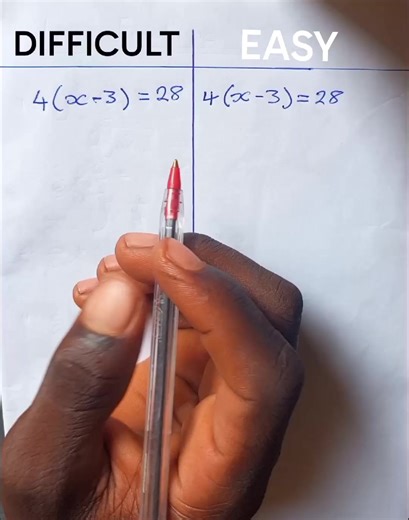 DIFFICULT EASY
4(x-3) = 28 4(x-3) = 28